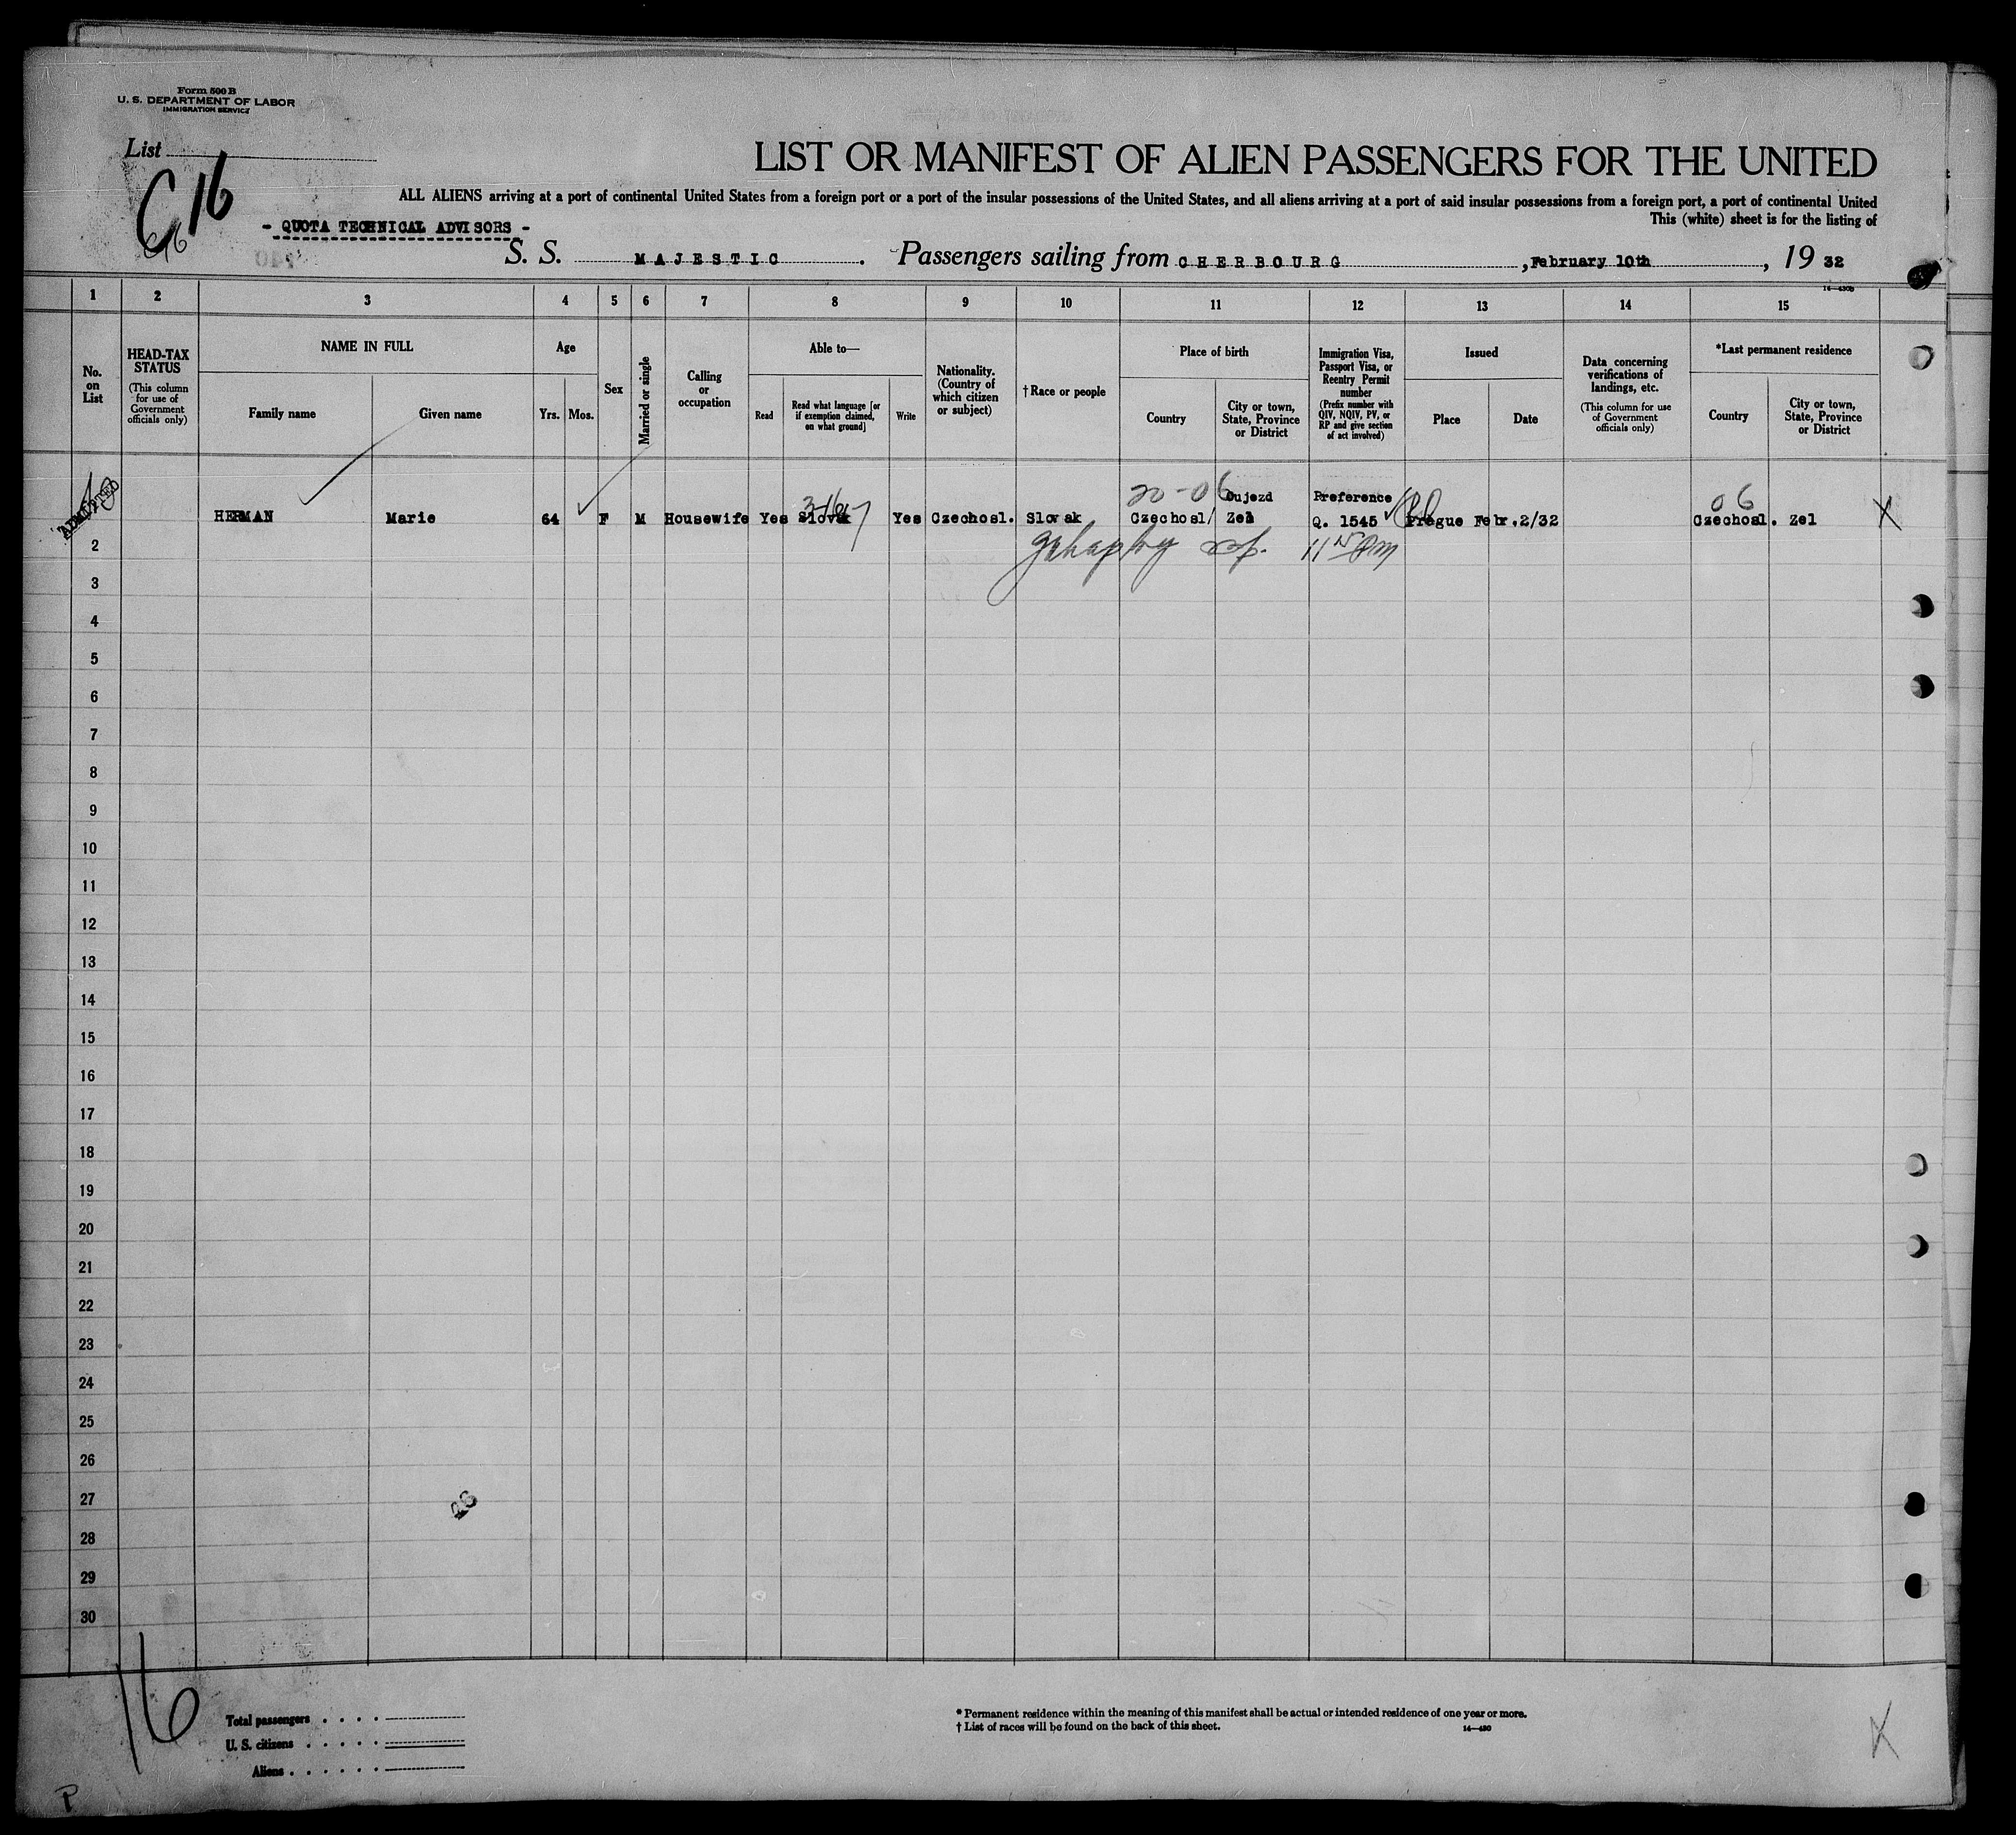 Form 500 B
U. S. DEPARTMENT OF LABOR
IMMIGRATION SERVICE
List
C 16
LIST OR MANIFEST OF ALIEN PASSENGERS FOR THE UNITED
ALL ALIENS arriving at a port of continental United States from a foreign port or a port of the insular possessions of the United States, and all aliens arriving at a port of said insular possessions from a foreign port, a port of continental United
This (white) sheet is for the listing of
- QUOTA TECHNICAL ADVISORS -
S. S. MAJESTIC. Passengers sailing from CHERBOURG, February 10th, 19 32
1 2 3 4 5 6 7 8 9 10 11 12 13 14 15
No. on List
HEAD-TAX STATUS
(This column for use of Government officials only)
NAME IN FULL
Family name
Given name
Age
Yrs.
Mos.
Sex
Married or single
Calling or occupation
Able to—
Read
Read what language [or if exemption claimed, on what ground]
Write
Nationality. (Country of which citizen or subject)
† Race or people
Place of birth
Country
City or town, State, Province or District
Immigration Visa, Passport Visa, or Reentry Permit number
(Prefix number with QIV, NQIV, PV, or RP and give section of act involved)
Issued
Place
Date
Data concerning verifications of landings, etc.
(This column for use of Government officials only)
*Last permanent residence
Country
City or town, State, Province or District
20-06 Oujezd Preference 06
ADMITTED HERMAN Marie 64 F M Housewife Yes Slovak Yes Czechosl. Slovak Czechosl/ Zel Q. 1545 Prague Febr.2/32 Czechosl. Zel X
2
3
4
5
6
7
8
9
10
11
12
13
14
15
16
17
18
19
20
21
22
23
24
25
26
27
28
29
30
16
Total passengers
U. S. citizens
Aliens
* Permanent residence within the meaning of this manifest shall be actual or intended residence of one year or more.
† List of races will be found on the back of this sheet.
14—430
X
P